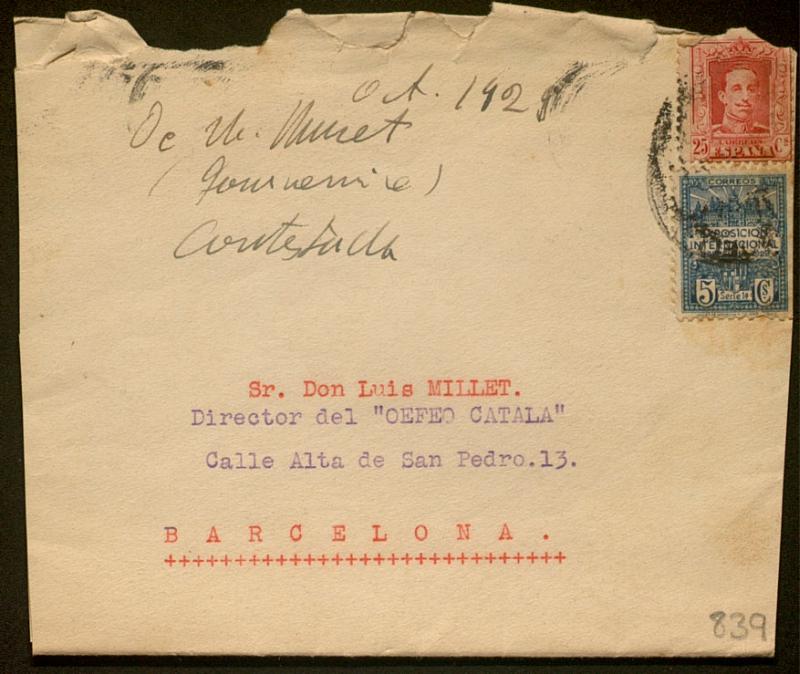 Oct. 192
De M. Muset
(Gournerie)
Contestada
25 CORREOS Cs
ESPAÑA
CORREOS
EXPOSICION
INTERNACIONAL
5 Cs
Sr. Don Luis MILLET.
Director del "OEFEO CATALA"
Calle Alta de San Pedro.13.
B A R C E L O N A .
++++++++++++++++++++++++++++
839